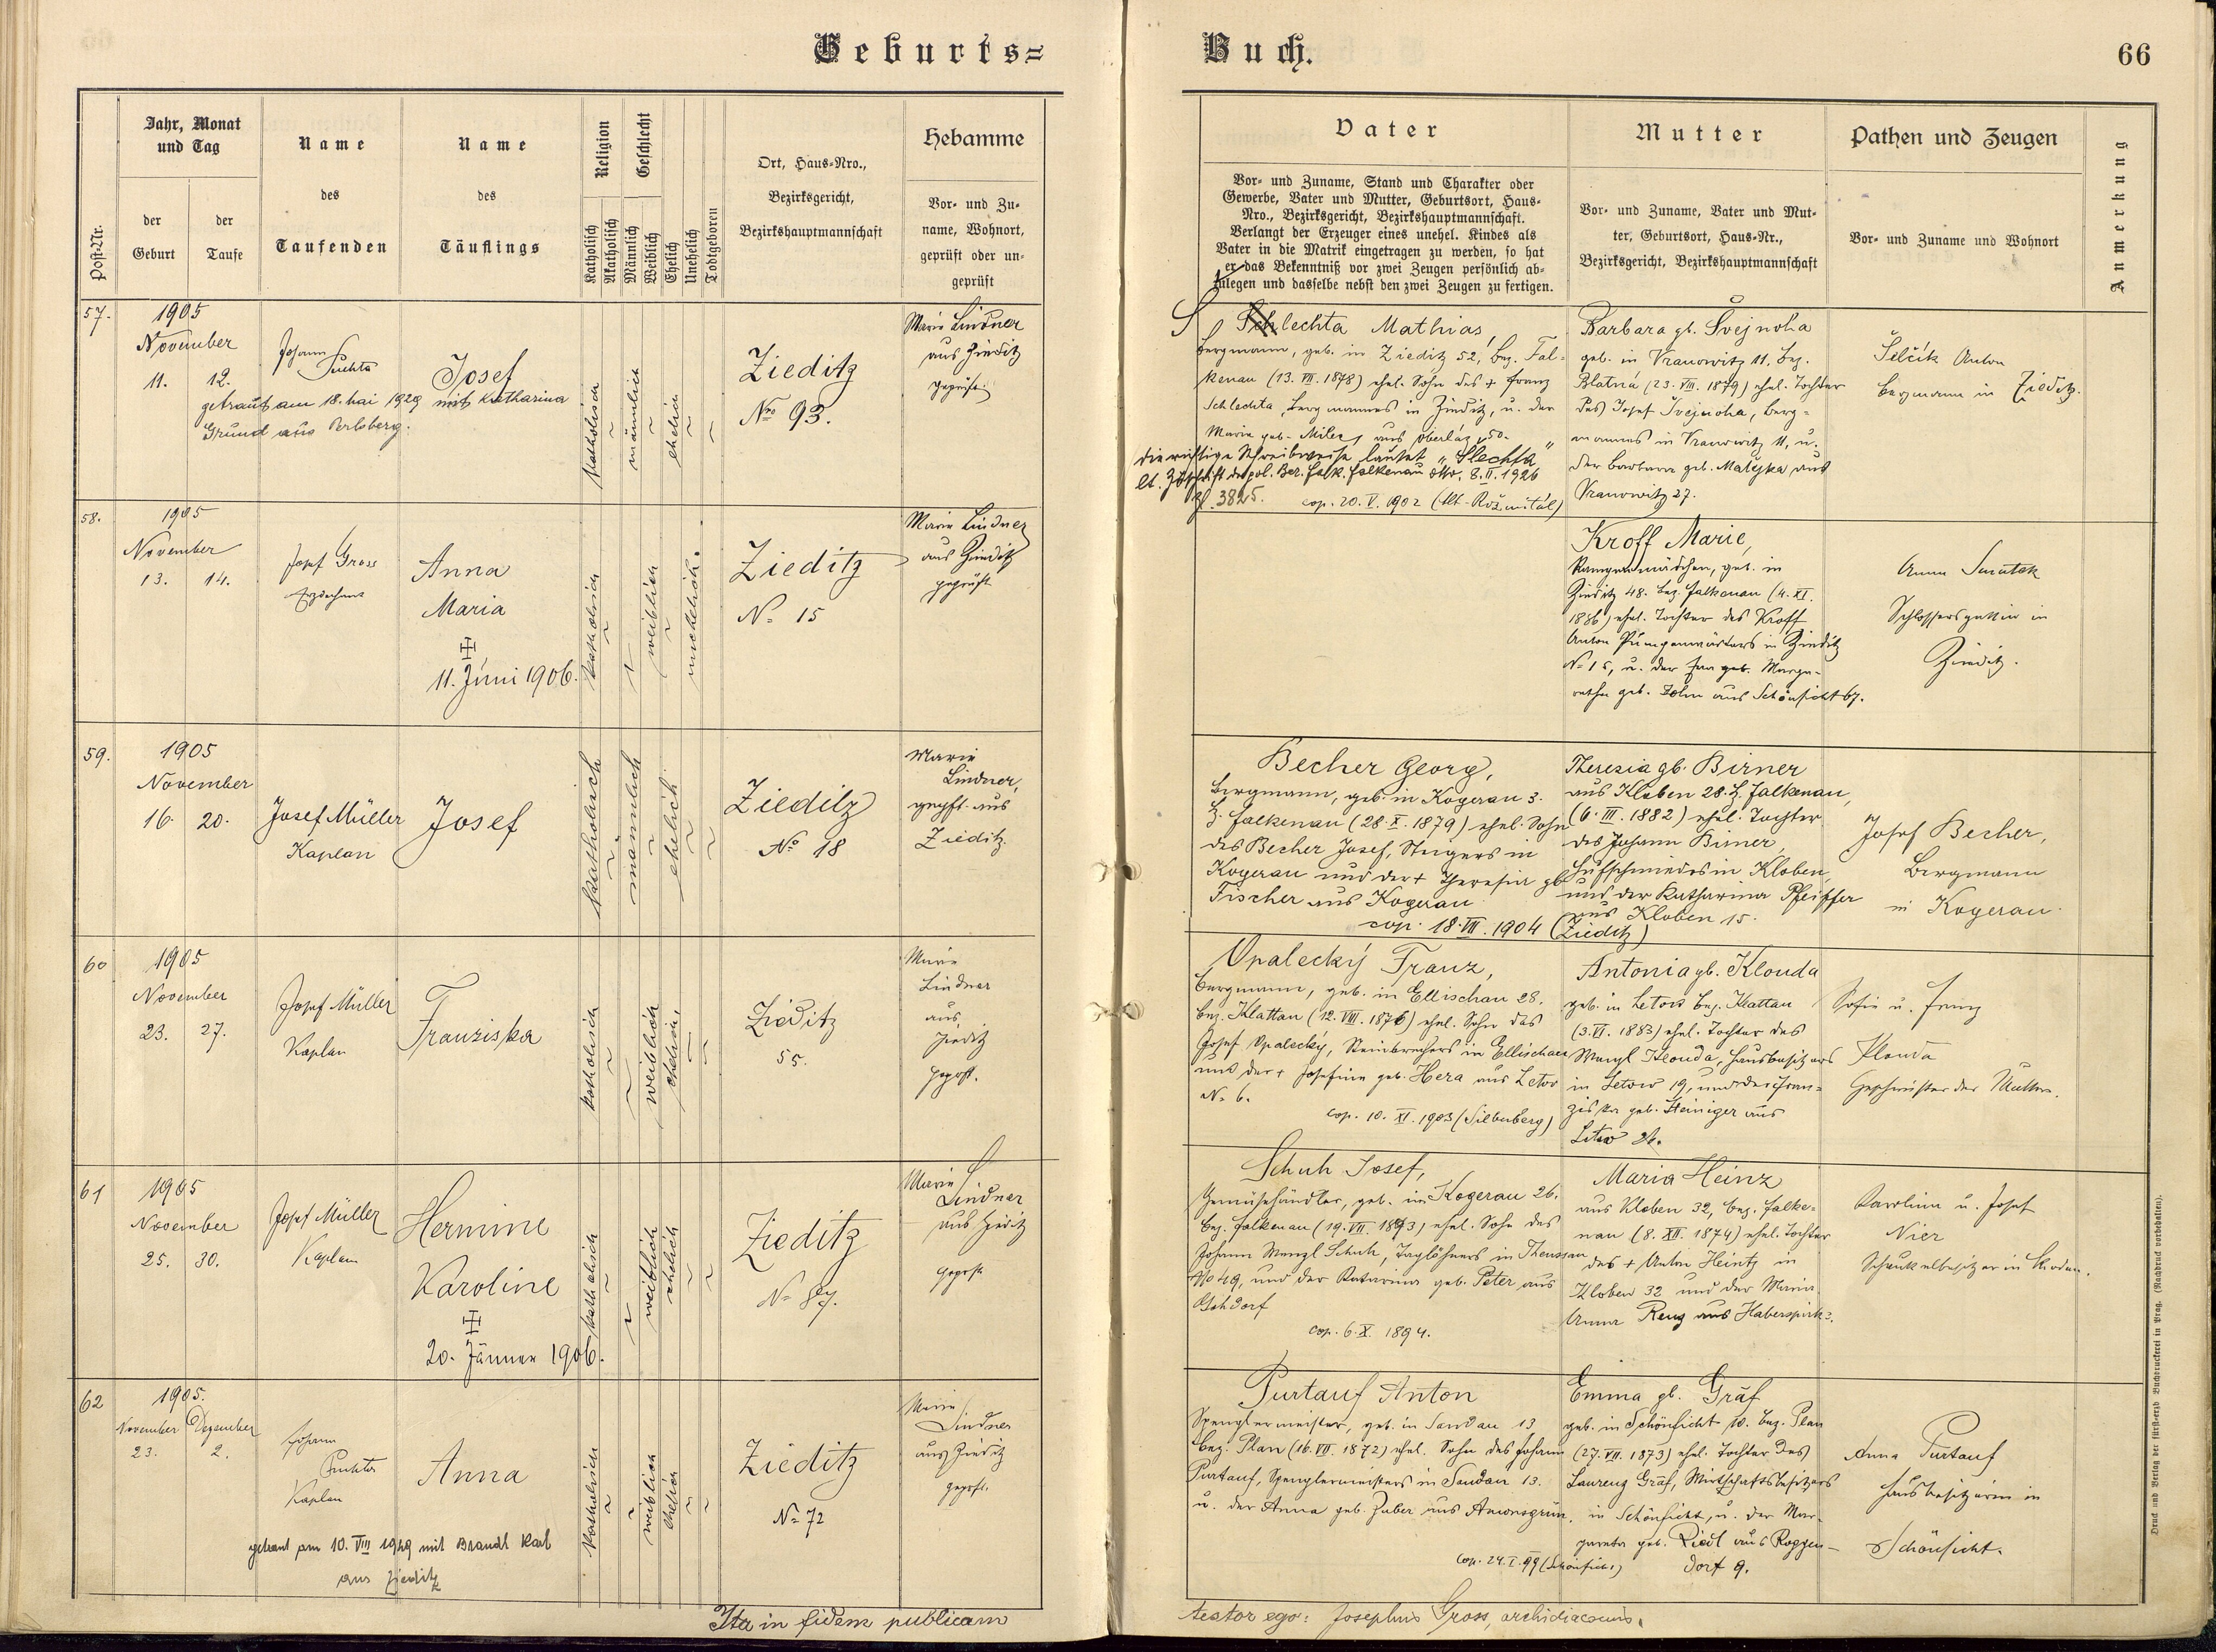 Geburts=
Buch.
66
Post-Nr.
Jahr, Monat
und Tag
der
Geburt
der
Taufe
Name
des
Taufenden
Name
des
Täuflings
Religion
Katholisch
Akatholisch
Geschlecht
Männlich
Weiblich
Ehelich
Unehelich
Todtgeboren
Ort, Haus-Nro.,
Bezirksgericht,
Bezirkshauptmannschaft
Hebamme
Vor- und Zu-
name, Wohnort,
geprüft oder un-
geprüft
Vater
Vor- und Zuname, Stand und Charakter oder
Gewerbe, Vater und Mutter, Geburtsort, Haus-
Nro., Bezirksgericht, Bezirkshauptmannschaft.
Verlangt der Erzeuger eines unehel. Kindes als
Vater in die Matrik eingetragen zu werden, so hat
er das Bekenntniß vor zwei Zeugen persönlich ab-
zulegen und dasselbe nebst den zwei Zeugen zu fertigen.
Mutter
Vor- und Zuname, Vater und Mut-
ter, Geburtsort, Haus-Nr.,
Bezirksgericht, Bezirkshauptmannschaft
Pathen und Zeugen
Vor- und Zuname und Wohnort
Anmerkung
57.
1905
November
11. 12.
Johann
Puchta
Josef
getraut am 18. Mai 1929 mit Katharina
Grund aus Perlsberg.
katholisch
männlich
ehelich
Zieditz
Nro 93.
Marie Lindner
aus Zieditz
geprüft.
S
Schlechta Mathias,
Bergmann, geb. in Zieditz 52, bez. Fal-
kenau (13. VII. 1878) ehel. Sohn des + Franz
Schlechta, Bergmannes in Zieditz, u. der
Marie geb. Miler, aus Oberlaz 50.
Die richtige Schreibweise lautet "Slechta"
lt. Zuschrift der pol. Bez. Falk. Falkenau dto. 8.II.1926
Zl. 3825. cop. 20. V. 1902 (Alt-Rožmitál)
Barbara gb. Švejnoha
geb. in Vranowitz 11, bez.
Blatná (23. VIII. 1879) ehel. Tochter
des Josef Švejnoha, Berg-
mannes in Vranowitz 11, u.
der Barbara geb. Matejka aus
Vranowitz 27.
Šilčik Anton
Bergmann in Zieditz.
58.
1905
November
13. 14.
Josef Gross
Erzdechant
Anna
Maria
11. Juni 1906.
katholisch
weiblich
unehelich.
Zieditz
No 15
Marie Lindner
aus Zieditz
geprüft
Kroff Marie,
geb. in
Zieditz 48. bez. Falkenau (4. XI.
1886) ehel. Tochter des Kroff
Anton Pumpenwärters in Zieditz
No 15, u. der
geb. aus Schönficht 67.
Anna
Schlossersgattin in
Zieditz.
59.
1905
November
16. 20.
Josef Müller
Kaplan
Josef
katholisch
männlich
ehelich
Zieditz
No 18
Marie
Lindner,
geprft. aus
Zieditz.
Becher Georg,
Bergmann, geb. in Kogerau 3.
bz. Falkenau (28. X. 1879) ehel. Sohn
des Becher Josef, Steigers in
Kogerau und der + Theresia gb
Fischer aus Kogerau
cop. 18. VII. 1904 (Zieditz)
Theresia gb. Birner
aus Kloben 28. bz. Falkenau,
(6. III. 1882) ehel. Tochter
des Johann Birner,
Hufschmiedes in Kloben,
und der Katharina Pfeiffer
aus Kloben 15.
Josef Becher,
Bergmann
in Kogerau.
60
1905
November
23. 27.
Josef Müller
Kaplan
Franziska
katholisch
weiblich
ehelich,
Zieditz
55.
Marie
Lindner
aus
Zieditz
geprft.
Opalecký Franz,
Bergmann, geb. in Ellischau 28.
bez. Klattau (12. VIII. 1876) ehel. Sohn des
Josef Opalecký, Steinbrechers in Ellischau
und der + Josefine geb. Hera aus Letov
No 6.
cop. 10. XI. 1903 (Silberberg)
Antonia gb. Klouda
geb. in Letow bez. Klattau
(3. VI. 1883) ehel. Tochter des
Wenzl Klouda, Hausbesitzers
in Letow 19, und der Fran-
ziska geb. Steiniger aus
Letow 21.
Sofie u. Franz
Klouda
Geschwister der Mutter.
61
1905
November
25. 30.
Josef Müller
Kaplan
Hermine
Karoline
20. Jänner 1906.
katholisch
weiblich
ehelich
Zieditz
No 87.
Marie
Lindner
aus Zieditz
geprft
Schuh Josef,
Gemüsehändler, geb. in Kogerau 26.
bez. Falkenau (19. VII. 1873) ehel. Sohn des
Johann Wenzl Schuh, Taglöhners in Theussau
No 49, und der Katarina geb. Peter aus
cop. 6. X. 1894.
Maria Heinz
aus Kloben 32, bez. Falke-
nau (8. XII. 1874) ehel. Tochter
des + Anton Heintz in
Kloben 32 und der Maria
Anna Renz aus Haberspirk.
Karolina u. Josef
Nier
Schaukelbesitzer in
62
1905.
November Dezember
23. 2.
Johann
Puchta
Kaplan
Anna
getraut am 10. VIII 1949 mit Brandl Karl
aus Zieditz
katholisch
weiblich
ehelich
Zieditz
No 72
Marie
Lindner
aus Zieditz
geprft.
Purtauf Anton
Spenglermeister, geb. in Sandau 13
bez. Plan (16. VII. 1872) ehel. Sohn des Johann
Purtauf, Spenglermeisters in Sandau 13.
u. der Anna geb. Zuber aus Amonsgrün.
cop. 24. I. 99 (Schönficht)
Emma gb. Gräf
geb. in Schönficht 10. bez. Plan
(27. VII. 1873) ehel. Tochter des
Laurenz Gräf, Wirtschaftsbesitzers
in Schönficht, u. der Mar-
gareta geb. Riedl aus Roggen-
dorf 9.
Anna Purtauf
Hausbesitzerin in
Schönficht.
Ita in fidem publicam
testor ego: Josephus Gross, archidiaconus.
Druck und Verlag der fürst-erzb. Buchdruckerei in Prag. (Nachdruck vorbehalten).